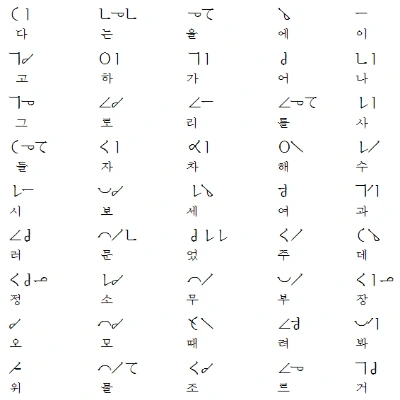 다 는 을 에 이
고 하 가 어 나
그 로 리 를 사
들 자 차 해 수
시 보 세 여 과
러 문 었 주 데
정 소 무 부 장
오 모 때 려 봐
위 물 조 르 거